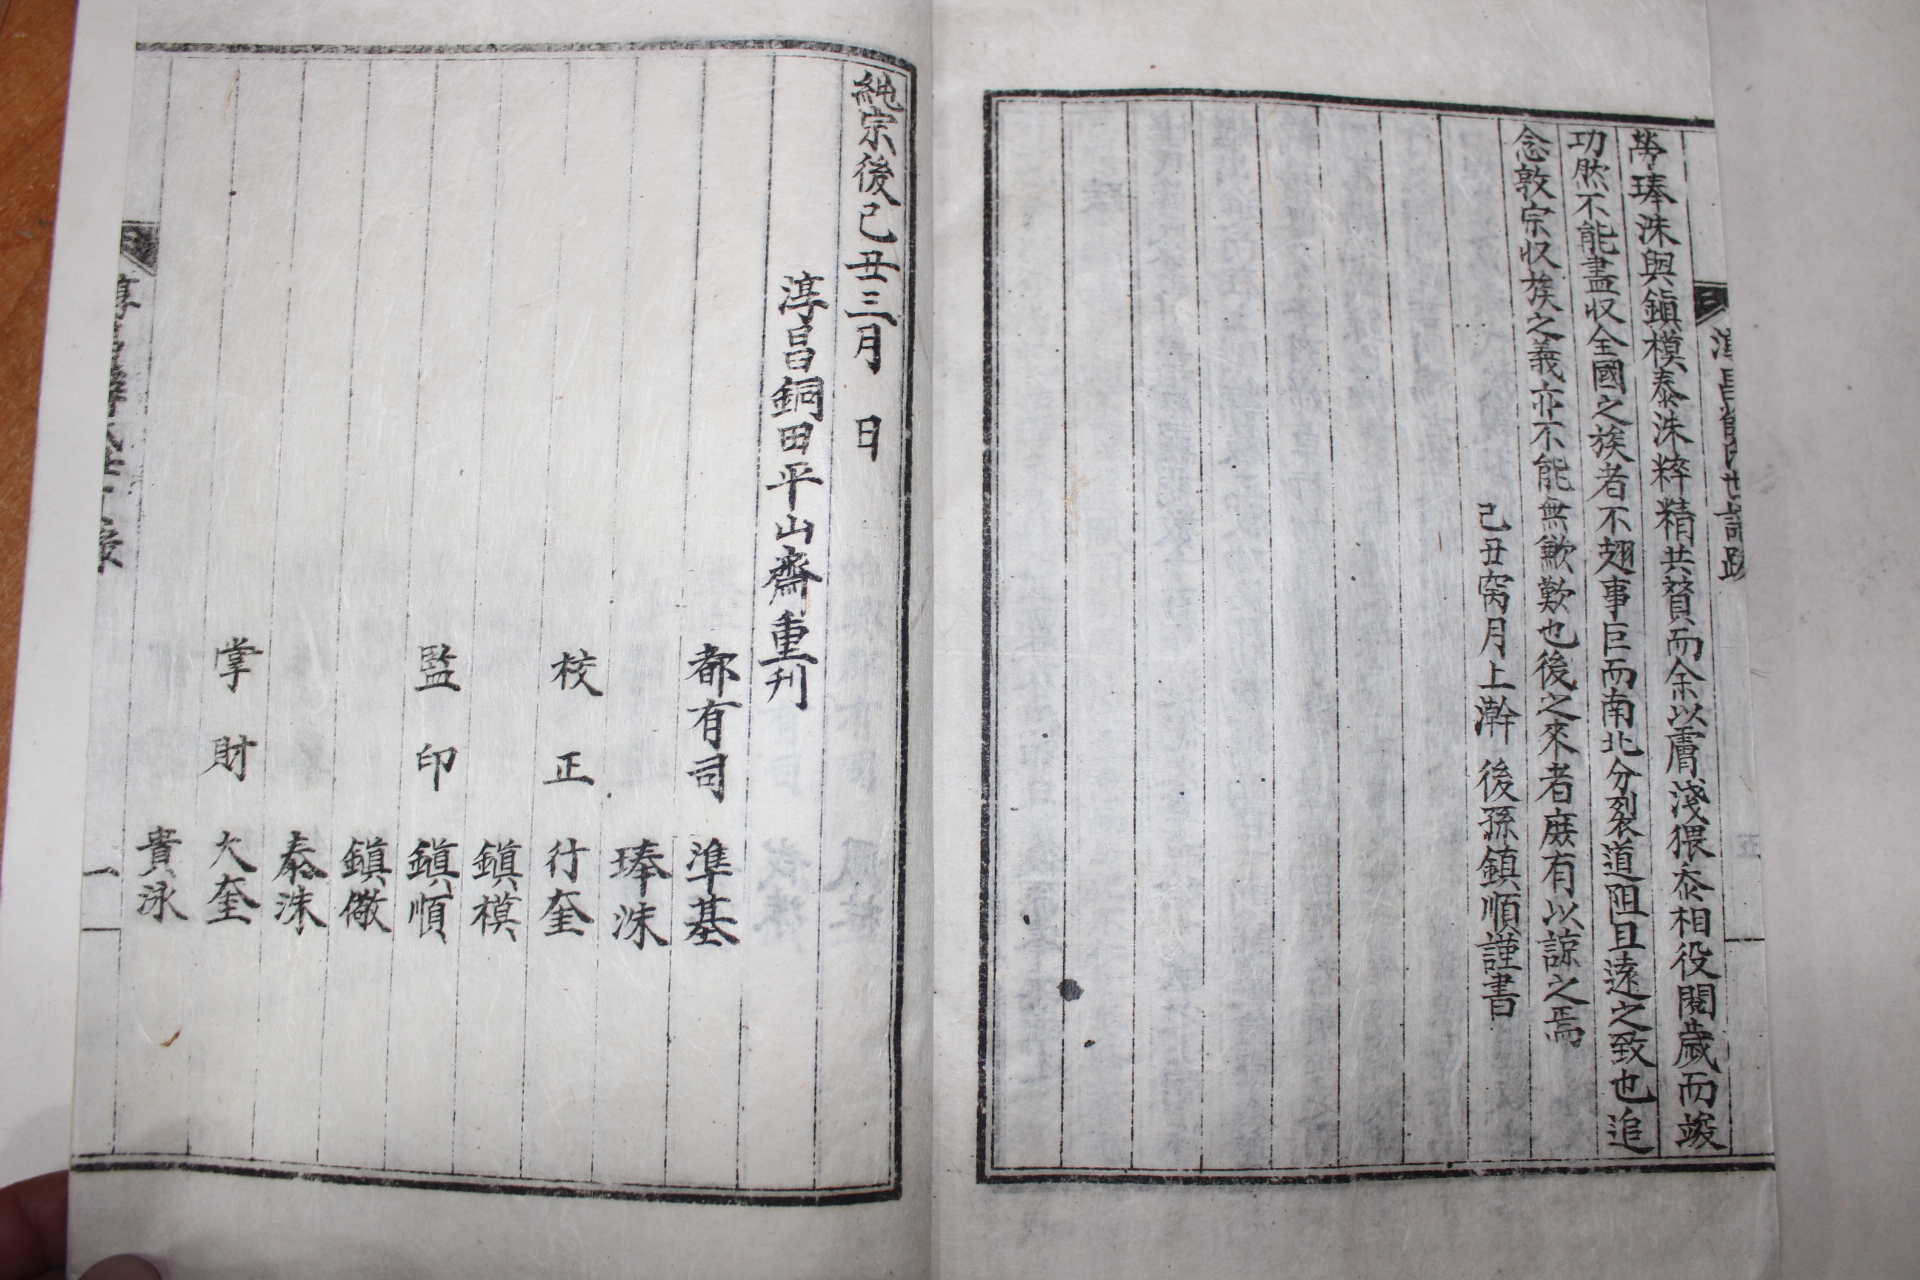 淳昌薛氏世譜跋
勞琫洙與鎭模泰洙粹精共贊而余以膚淺猥忝相役閱歲而竣
功然不能盡収全國之族者不翅事巨而南北分裂道阻且遠之致也追
念敦宗収族之義亦不能無歉歎也後之來者庶有以諒之焉
己丑窉月上澣 後孫鎭順謹書
純宗後己丑三月 日
淳昌銅田平山齋重刊
都有司 準基
琫洙
校正 行奎
鎭模
監印 鎭順
鎭儆
泰洙
掌財 大奎
貴泳
一